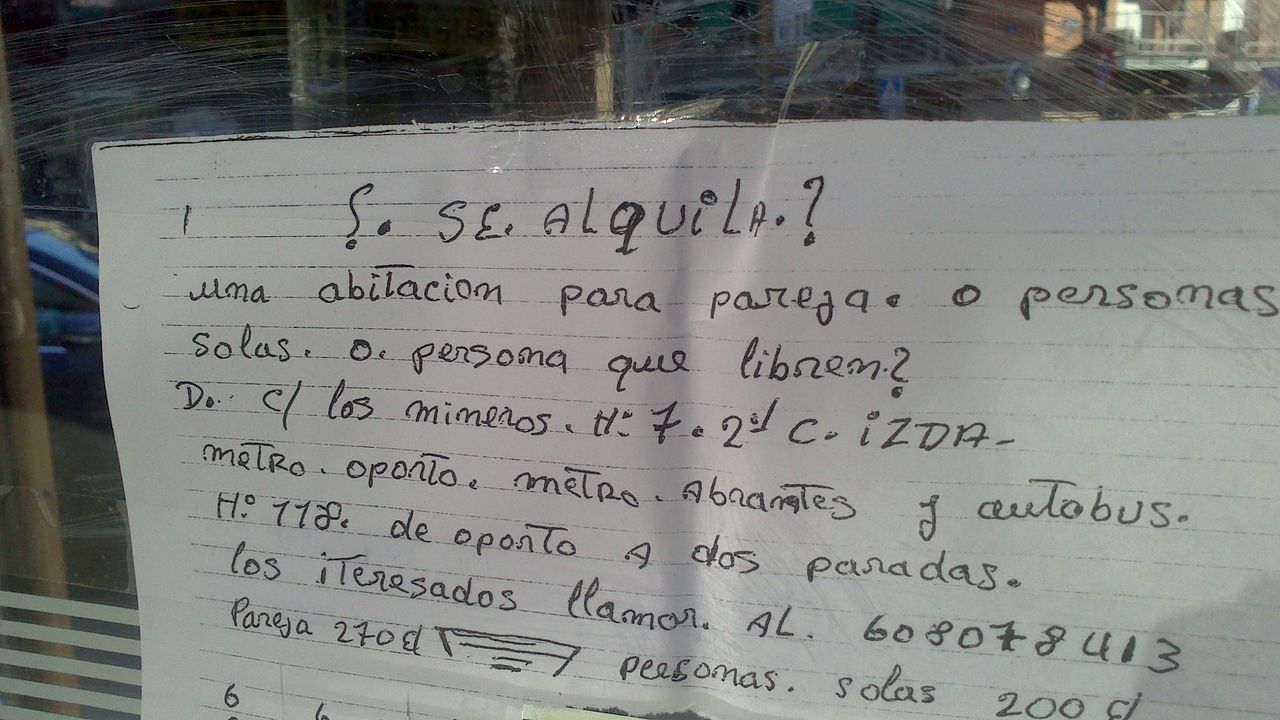 ¿. SE. ALQUiLA.?
una abitacion para pareja. o personas
solas. o. persona que libren?
D. c/ los mineros. Nº 7. 2º C. iZDA-
metro. oporto. metro. Abrantes y autobus.
Nº 118. de oporto A dos paradas.
los iteresados llamar. AL. 608078413
Pareja 270 € personas. solas 200 €
6 6